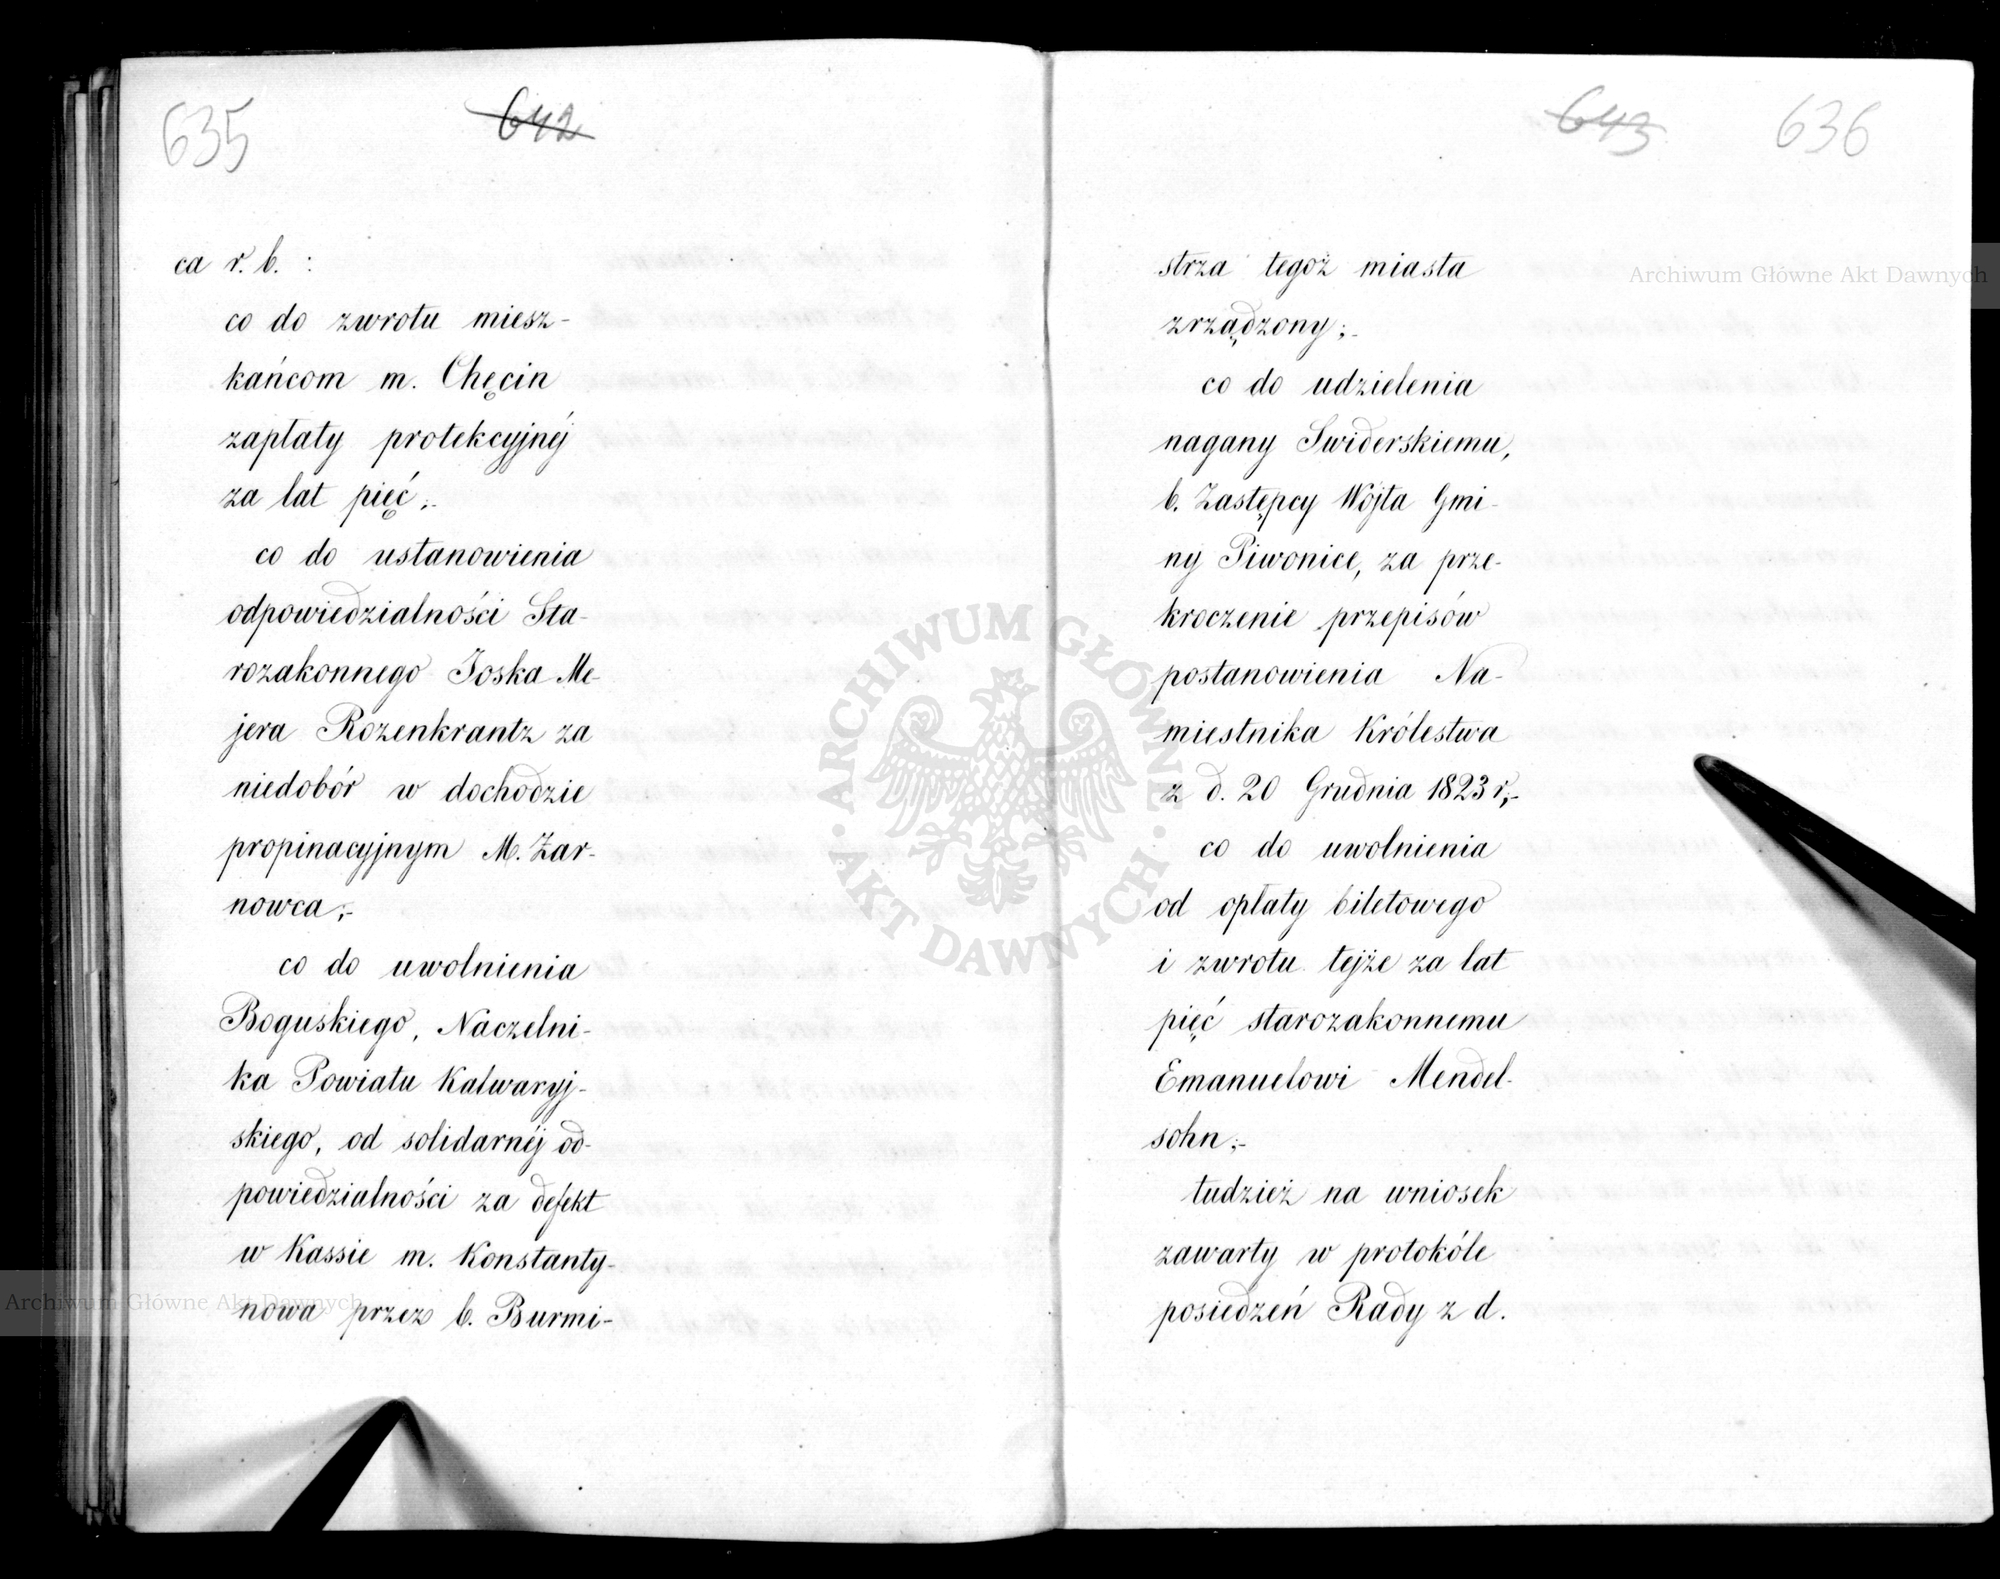 635
642
ca r. b. :
co do zwrotu miesz-
kańcom m. Chęcin
zapłaty protekcyjnéj
za lat pięć;-
co do ustanowienia
odpowiedzialności Sta-
rozakonnego Joska Me-
jera Rozenkrantz za
niedobór w dochodzie
propinacyjnym M. Żar-
nowca;-
co do uwolnienia
Boguskiego, Naczelni-
ka Powiatu Kalwaryj-
skiego, od solidarnéj od-
powiedzialności za defekt
w Kassie m. Konstanty-
nowa przez b. Burmi-
643
636
strza tegoż miasta
zrządzony;-
co do udzielenia
nagany Swiderskiemu,
b. Zastępcy Wójta Gmi-
ny Piwonice, za prze-
kroczenie przepisów
postanowienia Na-
miestnika Królestwa
z d. 20 Grudnia 1823 r;-
co do uwolnienia
od opłaty biletowego
i zwrotu tejże za lat
pięć starozakonnemu
Emanuelowi Mendel-
sohn;-
tudzież na wniosek
zawarty w protokóle
posiedzeń Rady z d.
ARCHIWUM GŁÓWNE
AKT DAWNYCH
Archiwum Główne Akt Dawnych
Archiwum Główne Akt Dawnych